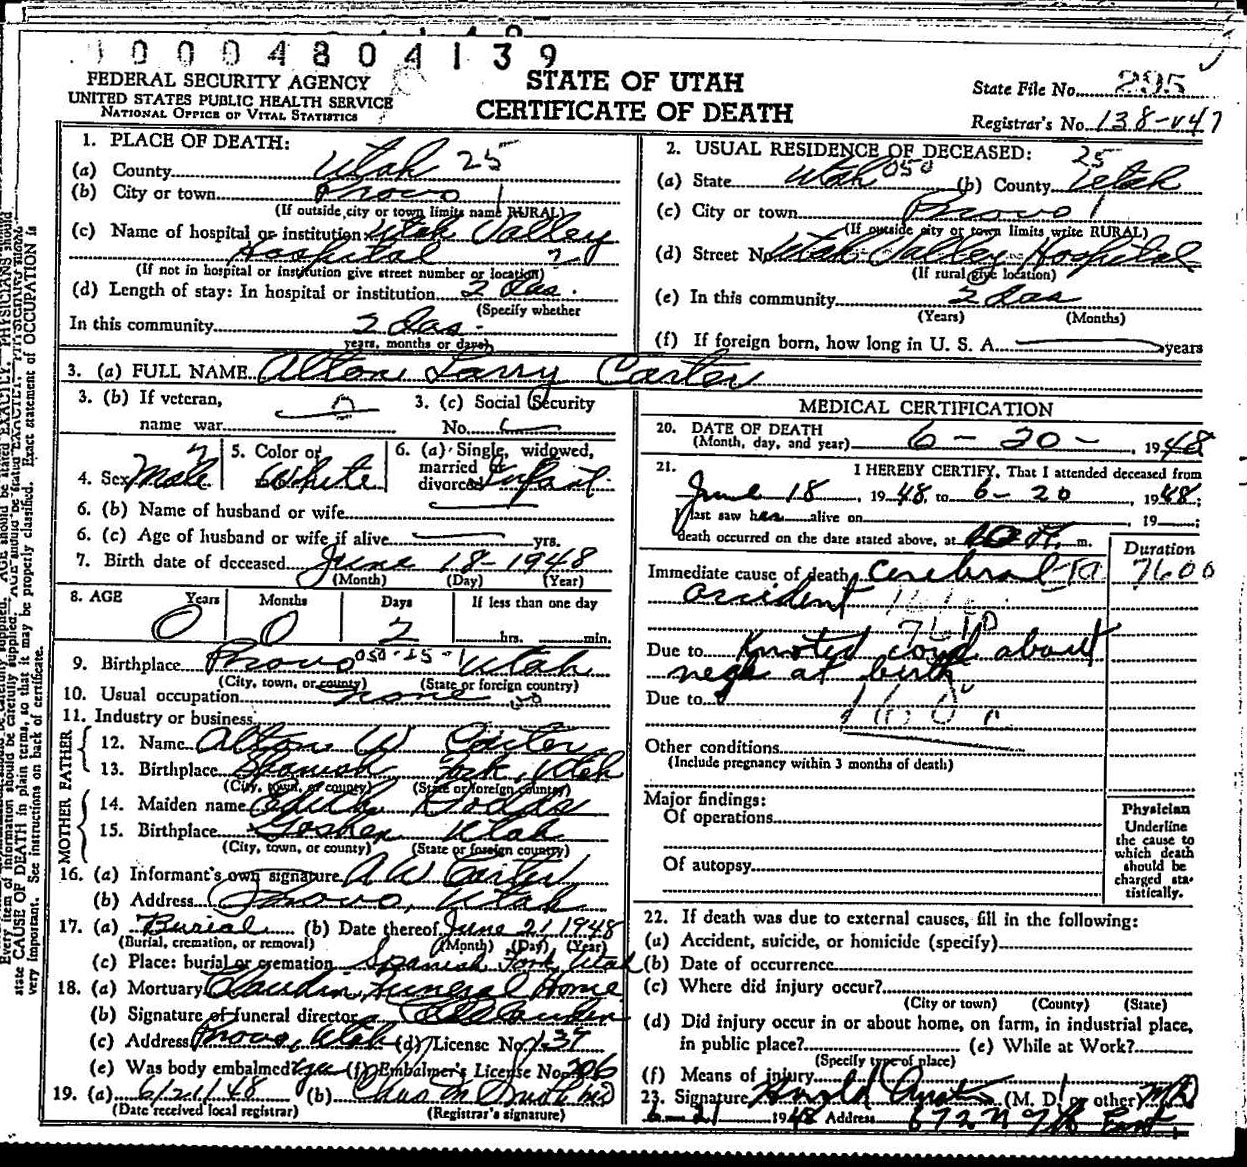 10004804139
FEDERAL SECURITY AGENCY
UNITED STATES PUBLIC HEALTH SERVICE
NATIONAL OFFICE OF VITAL STATISTICS
STATE OF UTAH
CERTIFICATE OF DEATH
State File No. 295
Registrar's No. 138-v47
1. PLACE OF DEATH:
(a) County Utah 25
(b) City or town Provo 1
(If outside city or town limits name RURAL)
(c) Name of hospital or institution Utah Valley
Hospital 2
(If not in hospital or institution give street number or location)
(d) Length of stay: In hospital or institution 2 das.
(Specify whether
In this community 2 das.
years, months or days)
2. USUAL RESIDENCE OF DECEASED: 25
(a) State Utah 050 (b) County Utah
(c) City or town Provo 1
(If outside city or town limits write RURAL)
(d) Street No. Utah Valley Hospital
(If rural give location)
(e) In this community 2 das
(Years) (Months)
(f) If foreign born, how long in U. S. A. years
3. (a) FULL NAME Alton Larry Carter
3. (b) If veteran,
name war
3. (c) Social Security
No.
4. Sex Male
5. Color or
White
6. (a) Single, widowed,
married or
divorced Infant
6. (b) Name of husband or wife
6. (c) Age of husband or wife if alive yrs.
7. Birth date of deceased June 18-1948
(Month) (Day) (Year)
8. AGE Years Months Days If less than one day
0 0 2 hrs. min.
9. Birthplace Provo 050-25-1 Utah
(City, town, or county) (State or foreign country)
10. Usual occupation none
11. Industry or business
FATHER
12. Name Alton W Carter
13. Birthplace Spanish Fork, Utah
(City, town, or county) (State or foreign country)
MOTHER
14. Maiden name Edith
15. Birthplace Goshen Utah
(City, town, or county) (State or foreign country)
16. (a) Informant's own signature A W Carter
(b) Address Provo, Utah
17. (a) Burial (b) Date thereof June 21 1948
(Burial, cremation, or removal) (Month) (Day) (Year)
(c) Place: burial or cremation Spanish Fork, Utah
18. (a) Mortuary Claudin Funeral Home
(b) Signature of funeral director
(c) Address Provo, Utah (d) License No. 137
(e) Was body embalmed (f) Embalmer's License No. 206
19. (a) 6/21/48 (b) Chas M Smith MD
(Date received local registrar) (Registrar's signature)
MEDICAL CERTIFICATION
20. DATE OF DEATH
(Month, day, and year) 6-20- 1948
21. I HEREBY CERTIFY, That I attended deceased from
June 18, 1948, to 6-20, 1948;
I last saw h alive on , 19 ;
death occurred on the date stated above, at m.
Duration
Immediate cause of death Cerebral 7600
accident
Due to Knoted cord about
neck at birth
Due to
1600
Other conditions
(Include pregnancy within 3 months of death)
Major findings:
Of operations
Of autopsy
Physician
Underline
the cause to
which death
should be
charged sta-
tistically.
22. If death was due to external causes, fill in the following:
(a) Accident, suicide, or homicide (specify)
(b) Date of occurrence
(c) Where did injury occur?
(City or town) (County) (State)
(d) Did injury occur in or about home, on farm, in industrial place,
in public place? (e) While at Work?
(Specify type of place)
(f) Means of injury
23. Signature (M. D. or other) MD
6-21 1948 Address 672 N 9th East